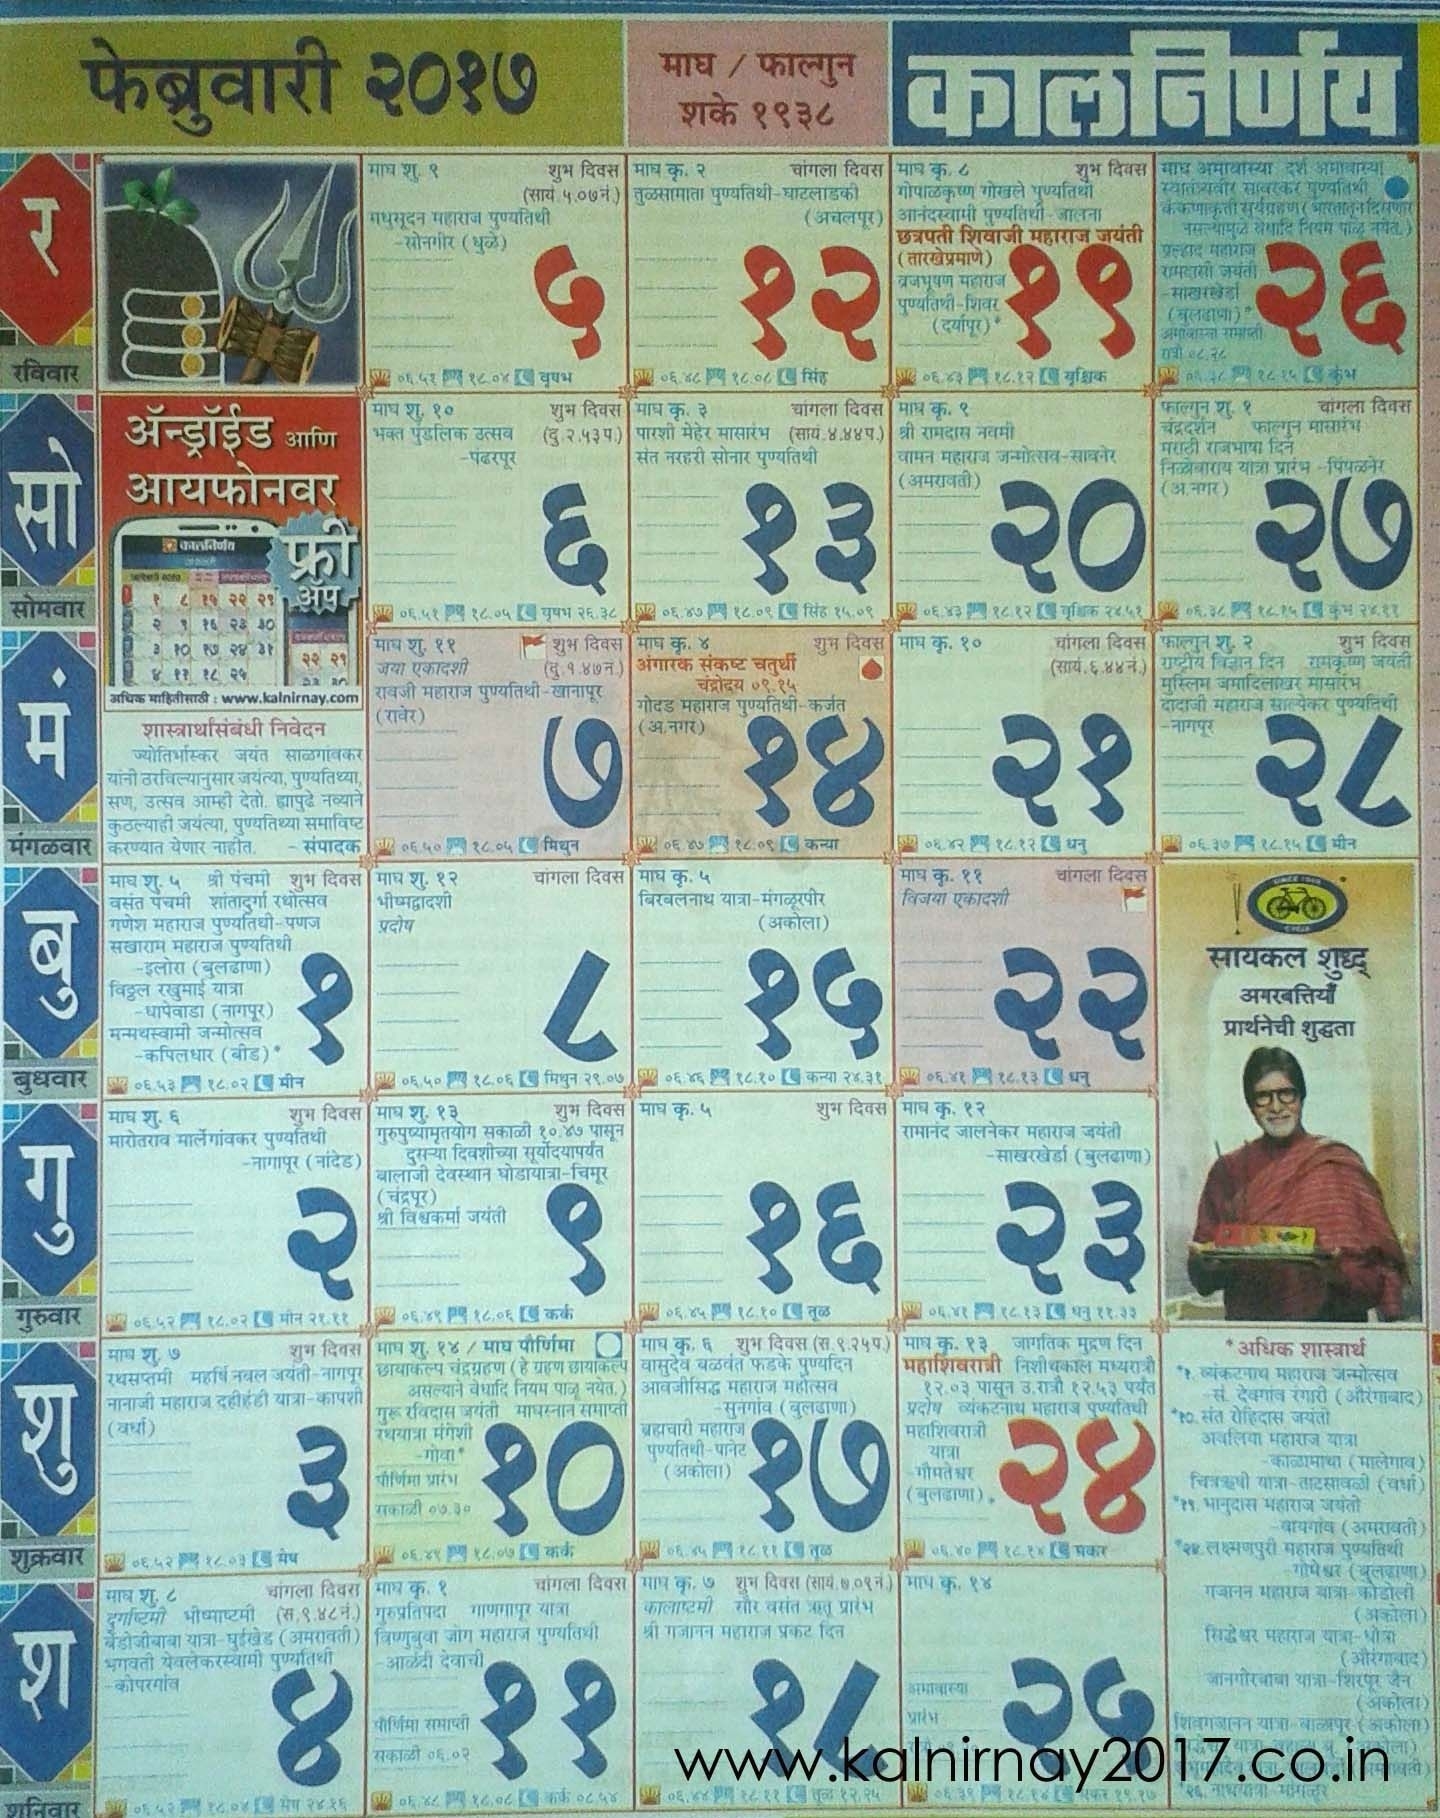 फेब्रुवारी २०१७
माघ / फाल्गुन
शके १९३८
कालनिर्णय
र
रविवार
माघ शु. ९ शुभ दिवस
(सायं.५.०७नं.)
मधुसूदन महाराज पुण्यतिथी
-सोनगीर (धुळे)
५
०६.५१ १८.०४ वृषभ
माघ कृ. २ चांगला दिवस
तुळसामाता पुण्यतिथी-घाटलाडकी
(अचलपूर)
१२
०६.४८ १८.०८ सिंह
माघ कृ. ८ शुभ दिवस
गोपाळकृष्ण गोखले पुण्यतिथी
आनंदस्वामी पुण्यतिथी-जालना
छत्रपती शिवाजी महाराज जयंती
(तारखेप्रमाणे)
व्रजभूषण महाराज
पुण्यतिथी-शिवर
(दर्यापूर)*
१९
०६.४३ १८.१२ वृश्चिक
माघ अमावास्या दर्श अमावास्या
स्वातंत्र्यवीर सावरकर पुण्यतिथी
कंकणाकृती सूर्यग्रहण (भारतातून दिसणार
नसल्यामुळे वेधादि नियम पाळू नयेत.)
प्रल्हाद महाराज
रामदासी जयंती
-साखरखेर्डा
(बुलढाणा)*
अमावास्या समाप्ती
रात्री ०८.२८
२६
०६.३८ १८.१५ कुंभ
सो
सोमवार
अॅन्ड्रॉईड आणि
आयफोनवर
कालनिर्णय
फ्री
अॅप
अधिक माहितीसाठी : www.kalnirnay.com
माघ शु. १० शुभ दिवस
भक्त पुंडलिक उत्सव (दु.२.५३प.)
-पंढरपूर
६
०६.५१ १८.०५ वृषभ २६.३८
माघ कृ. ३ चांगला दिवस
पारशी मेहेर मासारंभ (सायं.४.४४प.)
संत नरहरी सोनार पुण्यतिथी
१३
०६.४७ १८.०९ सिंह १५.०९
माघ कृ. ९
श्री रामदास नवमी
वामन महाराज जन्मोत्सव-सावनेर
(अमरावती)
२०
०६.४३ १८.१२ वृश्चिक २४.५१
फाल्गुन शु. १ चांगला दिवस
चंद्रदर्शन फाल्गुन मासारंभ
मराठी राजभाषा दिन
निळोबाराय यात्रा प्रारंभ -पिंपळनेर
(अ.नगर)
२७
०६.३८ १८.१५ कुंभ २४.११
मं
मंगळवार
शास्त्रार्थासंबंधी निवेदन
ज्योतिर्भास्कर जयंत साळगांवकर
यांनी ठरविल्यानुसार जयंत्या, पुण्यतिथ्या,
सण, उत्सव आम्ही देतो. ह्यापुढे नव्याने
कुठल्याही जयंत्या, पुण्यतिथ्या समाविष्ट
करण्यात येणार नाहीत. - संपादक
माघ शु. ११ शुभ दिवस
जया एकादशी (दु.१.४७नं.)
रावजी महाराज पुण्यतिथी-खानापूर
(रावेर)
७
०६.५० १८.०५ मिथुन
माघ कृ. ४ शुभ दिवस
अंगारक संकष्ट चतुर्थी
चंद्रोदय ०९.१५
गोदड महाराज पुण्यतिथी-कर्जत
(अ.नगर)
१४
०६.४७ १८.०९ कन्या
माघ कृ. १० चांगला दिवस
(सायं.६.४४नं.)
२१
०६.४२ १८.१२ धनु
फाल्गुन शु. २ शुभ दिवस
राष्ट्रीय विज्ञान दिन रामकृष्ण जयंती
मुस्लिम जमादिलाखर मासारंभ
दादाजी महाराज साल्पेकर पुण्यतिथी
-नागपूर
२८
०६.३७ १८.१५ मीन
बु
बुधवार
माघ शु. ५ श्री पंचमी शुभ दिवस
वसंत पंचमी शांतादुर्गा रथोत्सव
गणेश महाराज पुण्यतिथी-पणज
सखाराम महाराज पुण्यतिथी
-इलोरा (बुलढाणा)
विठ्ठल रखुमाई यात्रा
-धापेवाडा (नागपूर)
मन्मथस्वामी जन्मोत्सव
-कपिलधार (बीड)*
१
०६.५३ १८.०२ मीन
माघ शु. १२ चांगला दिवस
भीष्मद्वादशी
प्रदोष
८
०६.५० १८.०६ मिथुन २९.०७
माघ कृ. ५
बिरबलनाथ यात्रा-मंगळूरपीर
(अकोला)
१५
०६.४६ १८.१० कन्या २४.३१
माघ कृ. ११ चांगला दिवस
विजया एकादशी
२२
०६.४१ १८.१३ धनु
CYCLE
सायकल शुध्द
अगरबत्तियाँ
प्रार्थनेची शुद्धता
गु
गुरुवार
माघ शु. ६ शुभ दिवस
मारोतराव मार्लेगांवकर पुण्यतिथी
-नागापूर (नांदेड)
२
०६.५२ १८.०२ मीन २१.११
माघ शु. १३ शुभ दिवस
गुरुपुष्यामृतयोग सकाळी १०.४७ पासून
दुसऱ्या दिवशीच्या सूर्योदयापर्यंत
बालाजी देवस्थान घोडायात्रा-चिमूर
(चंद्रपूर)
श्री विश्वकर्मा जयंती
९
०६.४९ १८.०६ कर्क
माघ कृ. ५ शुभ दिवस
१६
०६.४५ १८.१० तूळ
माघ कृ. १२
रामानंद जालनेकर महाराज जयंती
-साखरखेर्डा (बुलढाणा)
२३
०६.४१ १८.१३ धनु ११.३३
शु
शुक्रवार
माघ शु. ७ शुभ दिवस
रथसप्तमी महर्षि नवल जयंती-नागपूर
नानाजी महाराज दहीहंडी यात्रा-कापशी
(वर्धा)
३
०६.५२ १८.०३ मेष
माघ शु. १४ / माघ पौर्णिमा
छायाकल्प चंद्रग्रहण (हे ग्रहण छायाकल्प
असल्याने वेधादि नियम पाळू नयेत.)
गुरू रविदास जयंती माघस्नान समाप्ती
रथयात्रा मंगेशी
-गोवा*
पौर्णिमा प्रारंभ
सकाळी ०७.३०
१०
०६.४९ १८.०७ कर्क
माघ कृ. ६ शुभ दिवस (स.९.२५प.)
वासुदेव बळवंत फडके पुण्यदिन
आवजीसिद्ध महाराज महोत्सव
-सुनगांव (बुलढाणा)
ब्रह्मचारी महाराज
पुण्यतिथी-पानेट
(अकोला)
१७
०६.४५ १८.११ तूळ
माघ कृ. १३ जागतिक मुद्रण दिन
महाशिवरात्री निशीथकाल मध्यरात्री
१२.०३ पासून उ.रात्री १२.५३ पर्यंत
प्रदोष व्यंकटनाथ महाराज पुण्यतिथी
महाशिवरात्री
यात्रा
-गौमतेश्वर
(बुलढाणा)*
२४
०६.४० १८.१४ मकर
*अधिक शास्त्रार्थ
*१. व्यंकटनाथ महाराज जन्मोत्सव
-सं. देवगांव रंगारी (औरंगाबाद)
*१०. संत रोहिदास जयंती
अवलिया महाराज यात्रा
-काळामाथा (मालेगांव)
चित्रऋषी यात्रा-ताटसावळी (वर्धा)
*१९. भानुदास महाराज जयंती
-वायगांव (अमरावती)
*२४. लक्ष्मणपुरी महाराज पुण्यतिथी
-गोमेधर (बुलढाणा)
गजानन महाराज यात्रा-कोंडोली
(अकोला)
सिद्धेश्वर महाराज यात्रा-धोत्रा
(औरंगाबाद)
जानगीरबाबा यात्रा-शिरपूर जैन
(अकोला)
शिवगजानन यात्रा-बाळापूर (अकोला)
श
शनिवार
माघ शु. ८ चांगला दिवस
दुर्गाष्टमी भीष्माष्टमी (स.९.४८नं.)
बेंडोजीबाबा यात्रा-घुईखेड (अमरावती)
भगवती येवलेकरस्वामी पुण्यतिथी
-कोपरगांव
४
०६.५२ १८.०४ मेष २४.१६
माघ कृ. १ चांगला दिवस
गुरुप्रतिपदा गाणगापूर यात्रा
विष्णुबुवा जोग महाराज पुण्यतिथी
-आळंदी देवाची
पौर्णिमा समाप्ती
सकाळी ०६.०२
११
०६.४८ १८.०८ कर्क ०८.५४
माघ कृ. ७ शुभ दिवस (सायं.७.०९नं.)
कालाष्टमी सौर वसंत ऋतू प्रारंभ
श्री गजानन महाराज प्रकट दिन
१८
०६.४४ १८.११ तूळ १२.२५
माघ कृ. १४
अमावास्या
प्रारंभ
२५
०६.३९ १८.१४ मकर १९.१७
www.kalnirnay2017.co.in